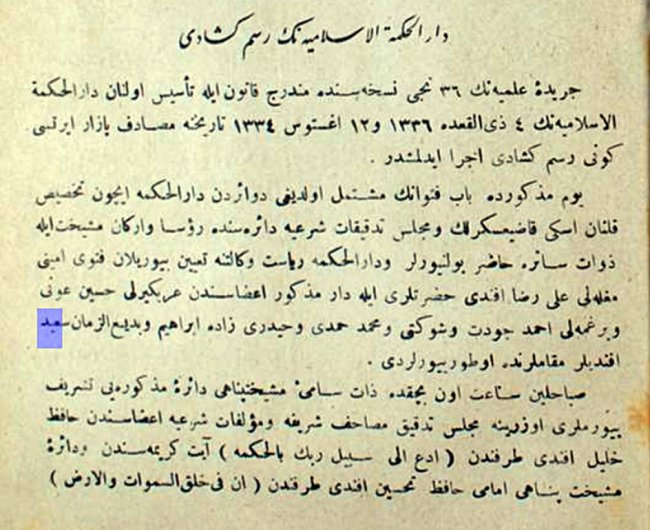 دار الحكمة الاسلاميه نك رسم كشادى
جريدهٔ علميه نك ٣٦ نجى نسخه سنده مندرج قانون ايله تأسيس اولنان دارالحكمة
الاسلاميه نك ٤ ذى القعده ١٣٣٦ و ١٢ اغستوس ١٣٣٤ تاريخنه مصادف بازار ايرتسى
كونى رسم كشادى اجرا ايدلمشدر .
يوم مذكورده باب فتوانك مشتمل اولديغى دوائردن دارالحكمه ايچون تخصيص
قلنان اسكى قاضيعسكرلك ومجلس تدقيقات شرعيه دائره سنده رؤسا واركان مشيخت ايله
ذوات سائره حاضر بولنيورلر ودارالحكمه رياست وكالتنه تعيين بيوريلان فتوى امينى
مغله لى على رضا افندى حضرتلرى ايله دار مذكور اعضاسندن عربكيرلى حسين عونى
وبرغمه لى احمد جودت وشوكتى ومحمد حمدى وحيدرى زاده ابراهيم وبديع الزمان سعيد
افنديلر مقاملرنده اوطورييورلردى .
صباحلين ساعت اون بچقده ذات سامئ مشيختپناهى دائرهٔ مذكوره يى تشريف
بيورملرى اوزرينه مجلس تدقيق مصاحف شريفه ومؤلفات شرعيه اعضاسندن حافظ
خليل افندى طرفندن ( ادع الى سبيل ربك بالحكمه ) آيت كريمه سندن ودائرهٔ
مشيخت پناهى امامى حافظ تحسين افندى طرفندن ( ان فى خلق السموات والارض )